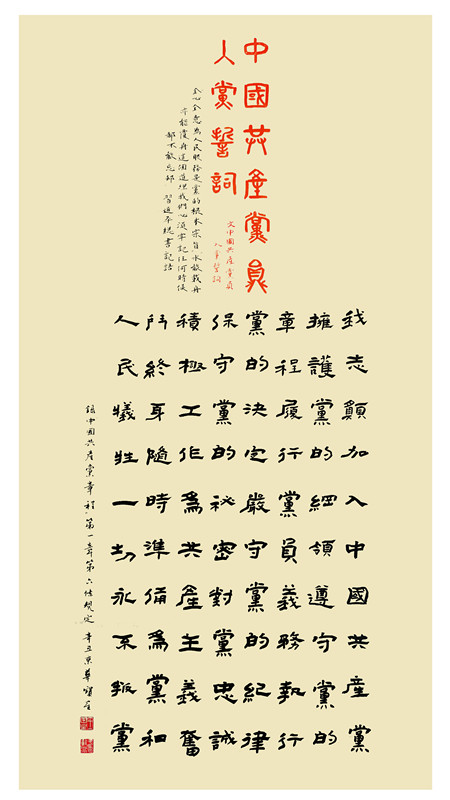 中國共產黨員
入黨誓詞
文中國共產黨員
入黨誓詞
全心全意為人民服務是黨的根本宗旨水能載舟
亦能覆舟這個道理我們必須牢記任何時候
都不敢忘却 習近平總書記語
我志願加入中國共產黨
擁護黨的綱領遵守黨的
章程履行黨員義務執行
黨的決定嚴守黨的紀律
保守黨的祕密對黨忠誠
積極工作為共產主義奮
鬥終身隨時準備為黨和
人民犧牲一切永不叛黨
錄中國共產黨章程第一章第六條規定 辛丑京華